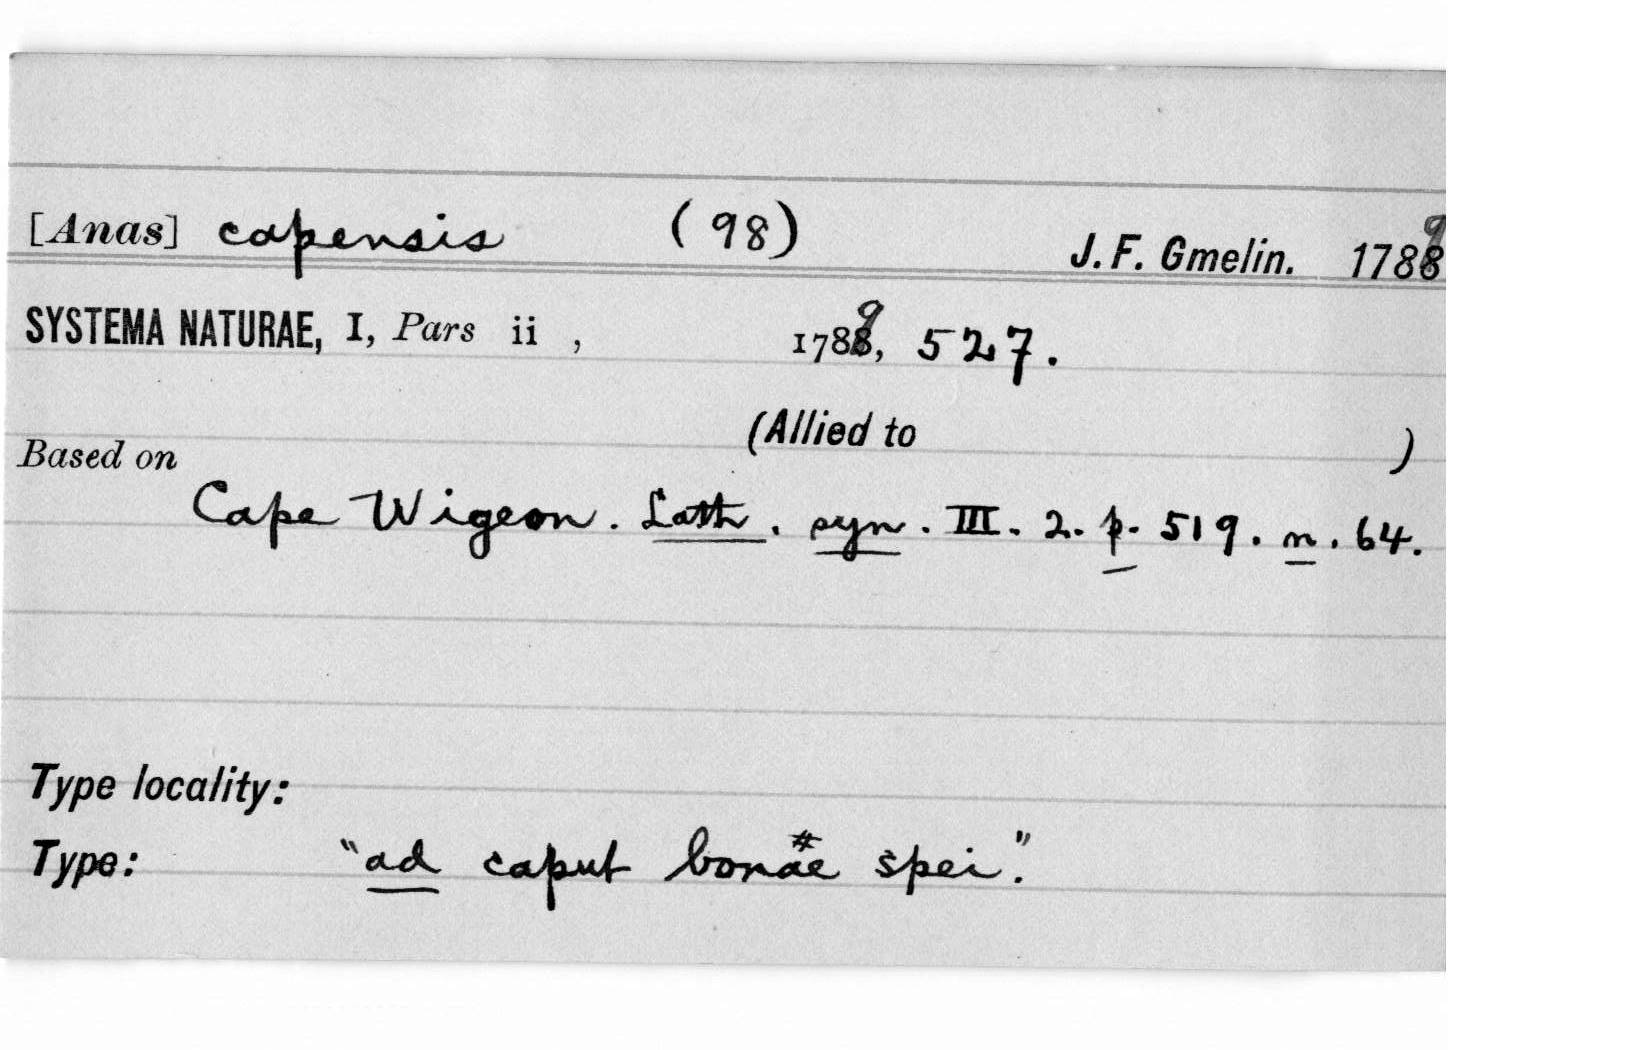 [Anas] capensis (98) J. F. Gmelin. 1789
SYSTEMA NATURAE, I, Pars ii , 1789, 527.
(Allied to )
Based on
Cape Wigeon. Lath. syn. III. 2. p. 519. n. 64.
Type locality:
Type: "ad caput bonae # spei."